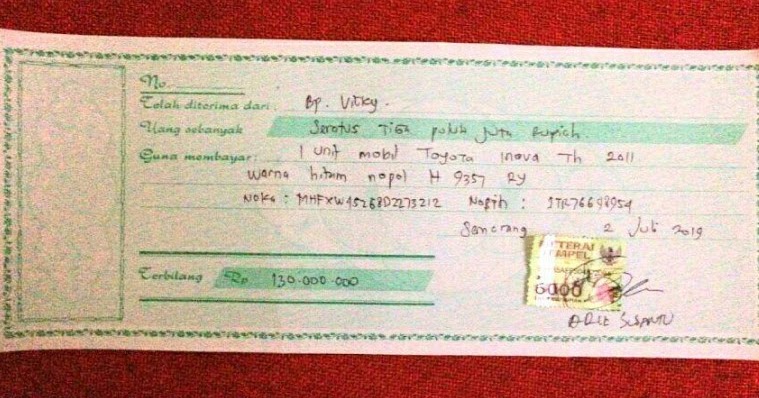 No.
Telah diterima dari : Bp. Vikky.
Uang sebanyak Seratus Tiga puluh Juta Rupiah.
Guna membayar: 1 Unit mobil Toyota Inova Th 2011
Warna hitam nopol H 9357 RY
Noka : MHFXW45268D2273212 Nosin : 1TR76698954
Semarang 2 Juli 2019
METERAI
TEMPEL
6000
Terbilang Rp 130.000.000
SUSANTO